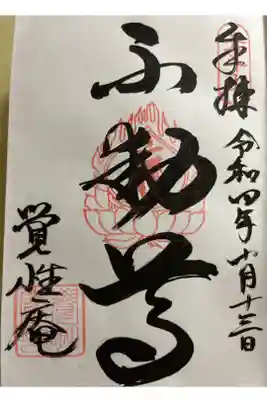 奉拝 令和四年十月十三日
不動尊
覺性庵